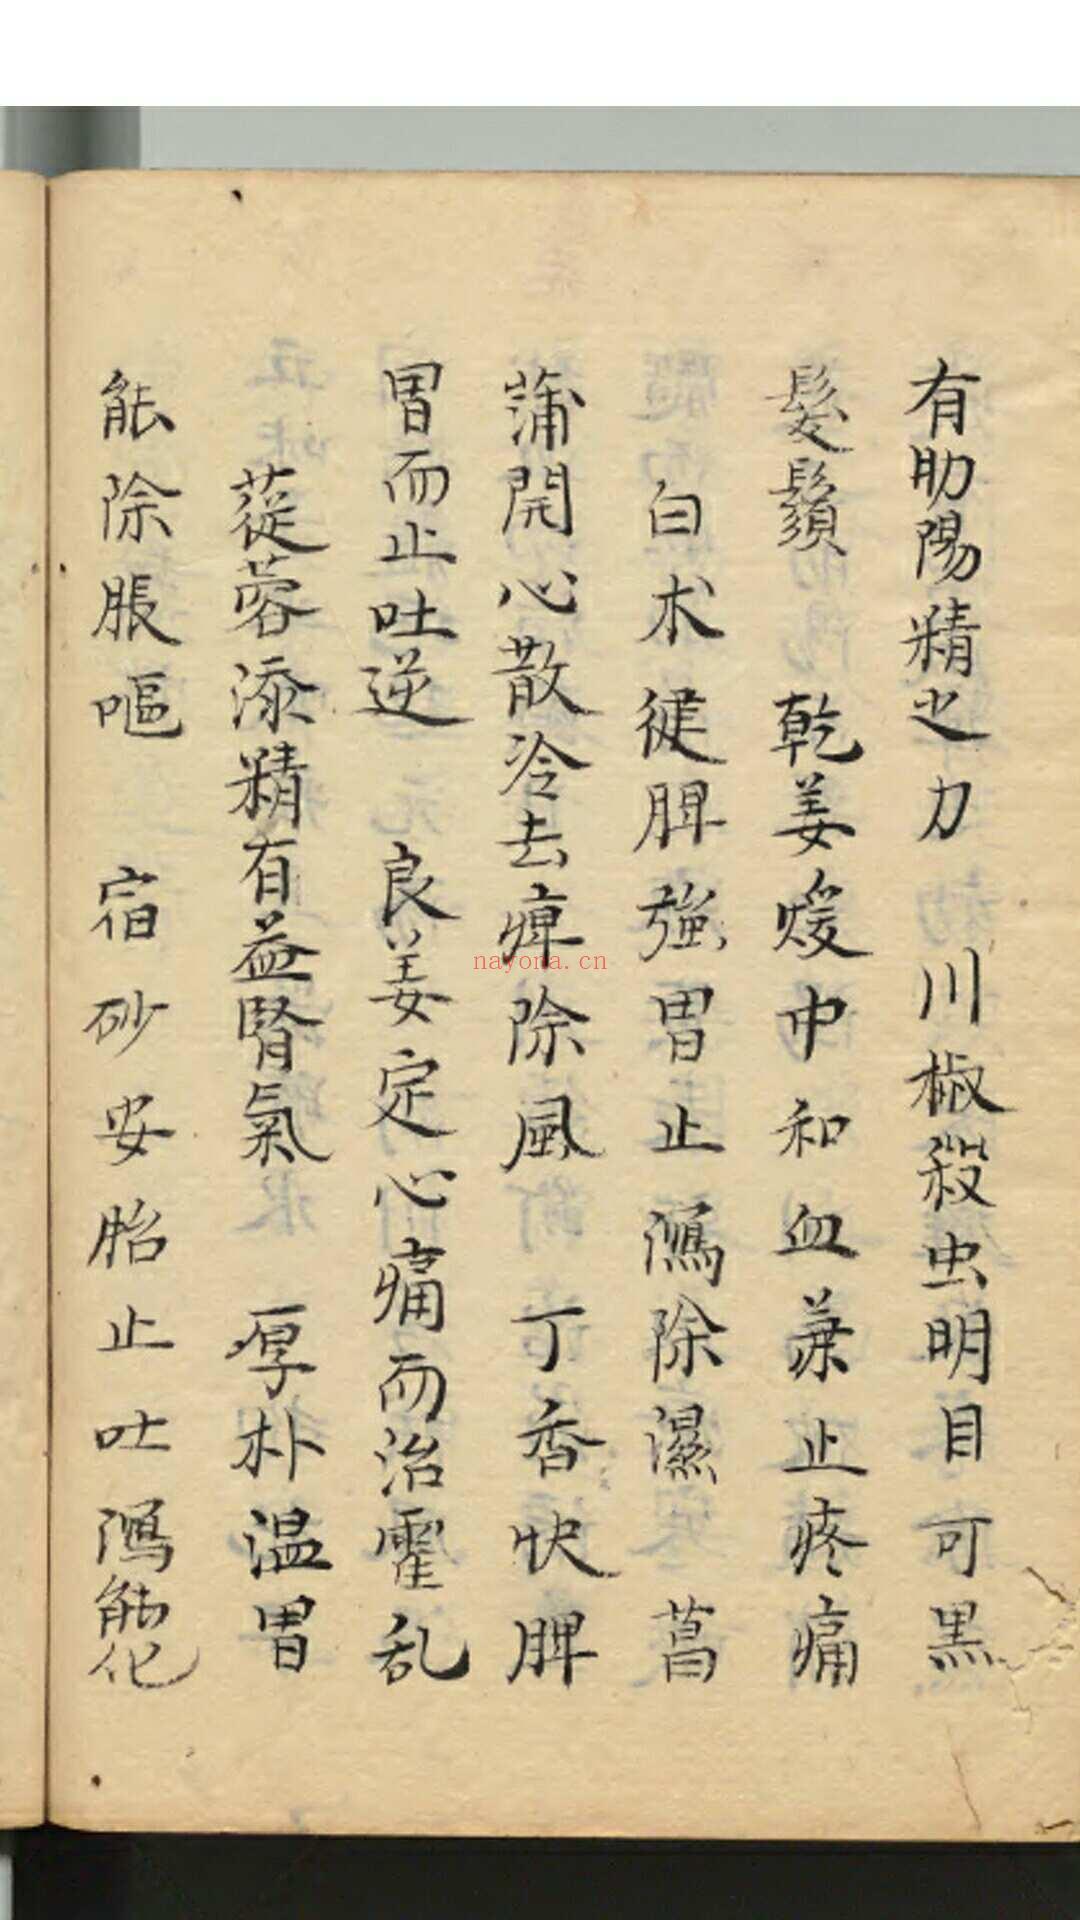 有助陽精之力　川椒殺虫明目可黑
髮鬚　乾姜煖中和血兼止疼痛
白术健脾強胃止瀉除濕　菖
蒲開心散冷去痺除風　丁香快脾
胃而止吐逆　良姜定心痛而治霍乱
蓯蓉添精有益腎氣　厚朴温胃
能除脹嘔　宿砂安胎止吐瀉能化
nayona.cn